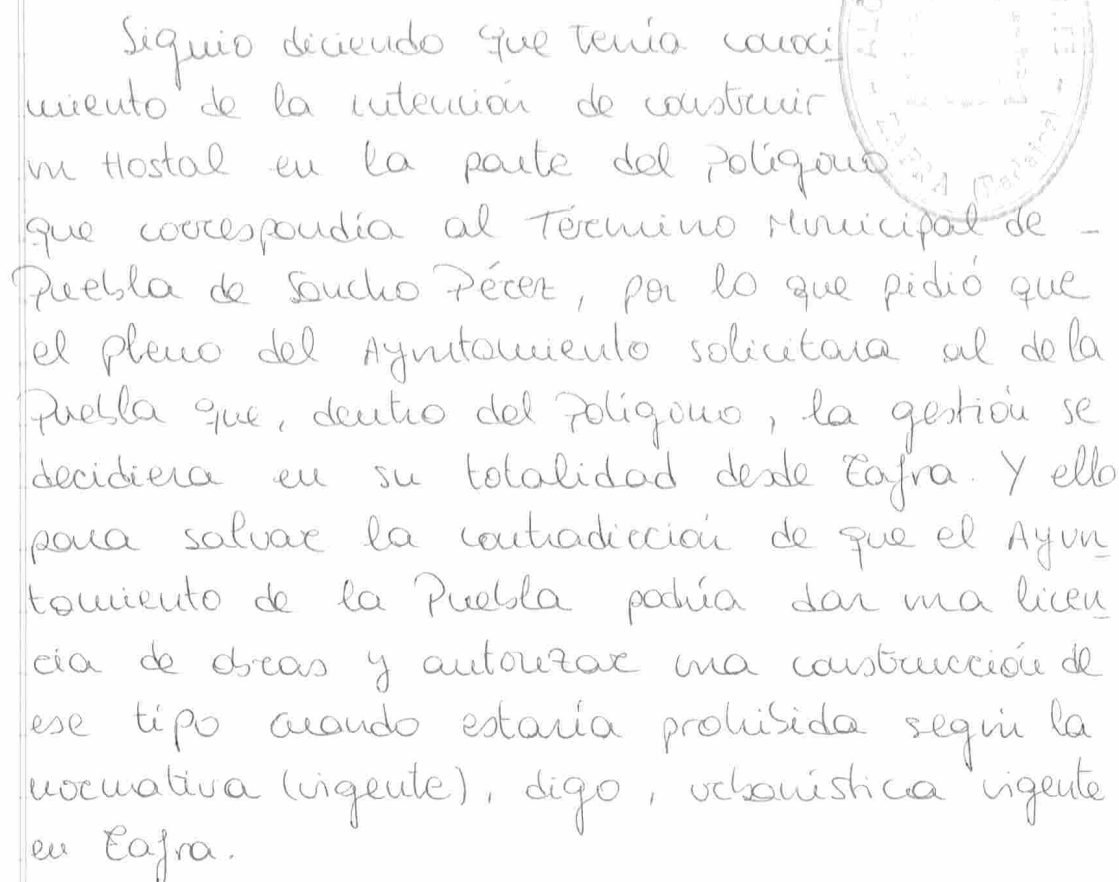 Siguio diciendo que tenía conoci
miento de la intención de construir
un Hostal en la parte del Polígono
que correspondía al Término Municipal de -
Puebla de Sancho Pérez, por lo que pidió que
el pleno del Ayuntamiento solicitara al de la
Puebla que, dentro del Polígono, la gestión se
decidiera en su totalidad desde Zafra. Y ello
para salvar la contradicción de que el Ayun
tamiento de la Puebla podría dar una licen
cia de obras y autorizar una construcción de
ese tipo cuando estaría prohibida según la
normativa (vigente), digo, urbanística vigente
en Zafra.